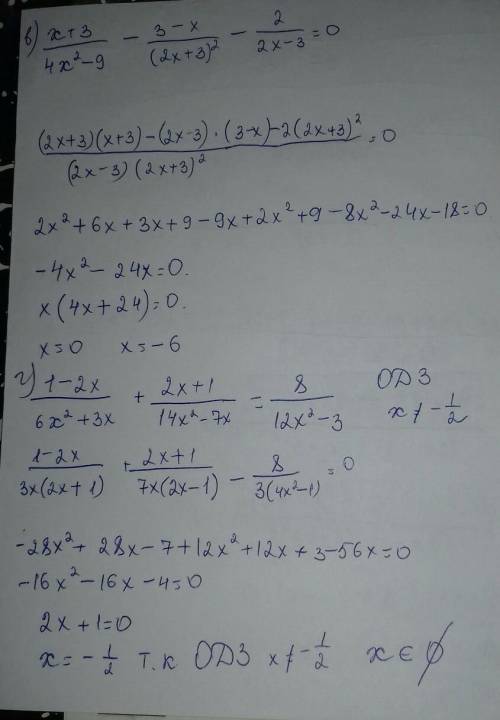 в) (x+3)/(4x²-9) - (3-x)/(2x+3)² - 2/(2x-3) = 0
((2x+3)(x+3)-(2x-3)·(3-x)-2(2x+3)²)/((2x-3)(2x+3)²) = 0
2x²+6x+3x+9-9x+2x²+9-8x²-24x-18=0
-4x²-24x=0.
x(4x+24)=0.
x=0 x=-6
г) (1-2x)/(6x²+3x) + (2x+1)/(14x²-7x) = 8/(12x²-3) ОДЗ
x≠-1/2
(1-2x)/(3x(2x+1)) + (2x+1)/(7x(2x-1)) - 8/(3(4x²-1)) = 0
-28x²+28x-7+12x²+12x+3-56x=0
-16x²-16x-4=0
2x+1=0
x=-1/2 т.к ОДЗ x≠-1/2 x∈∅